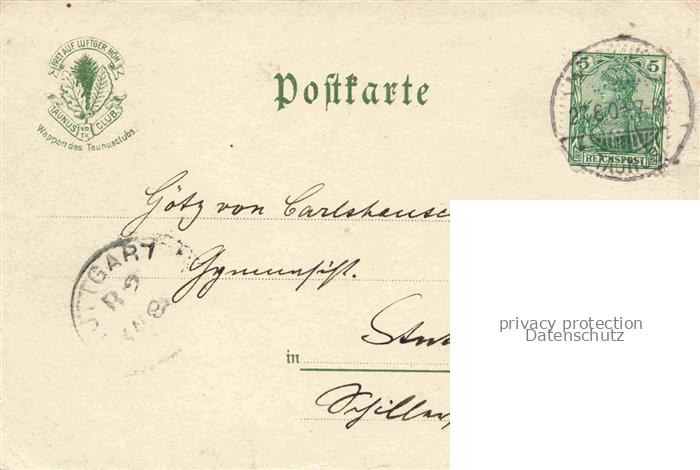 FREI AUF LUFTGER HÖH
TAUNUS CLUB
Wappen des Taunusclubs.
Postkarte
5 5
REICHSPOST
Götz von Carlshausen
Gymnasist.
STUTTGART
in Stut
Schiller
privacy protection
Datenschutz